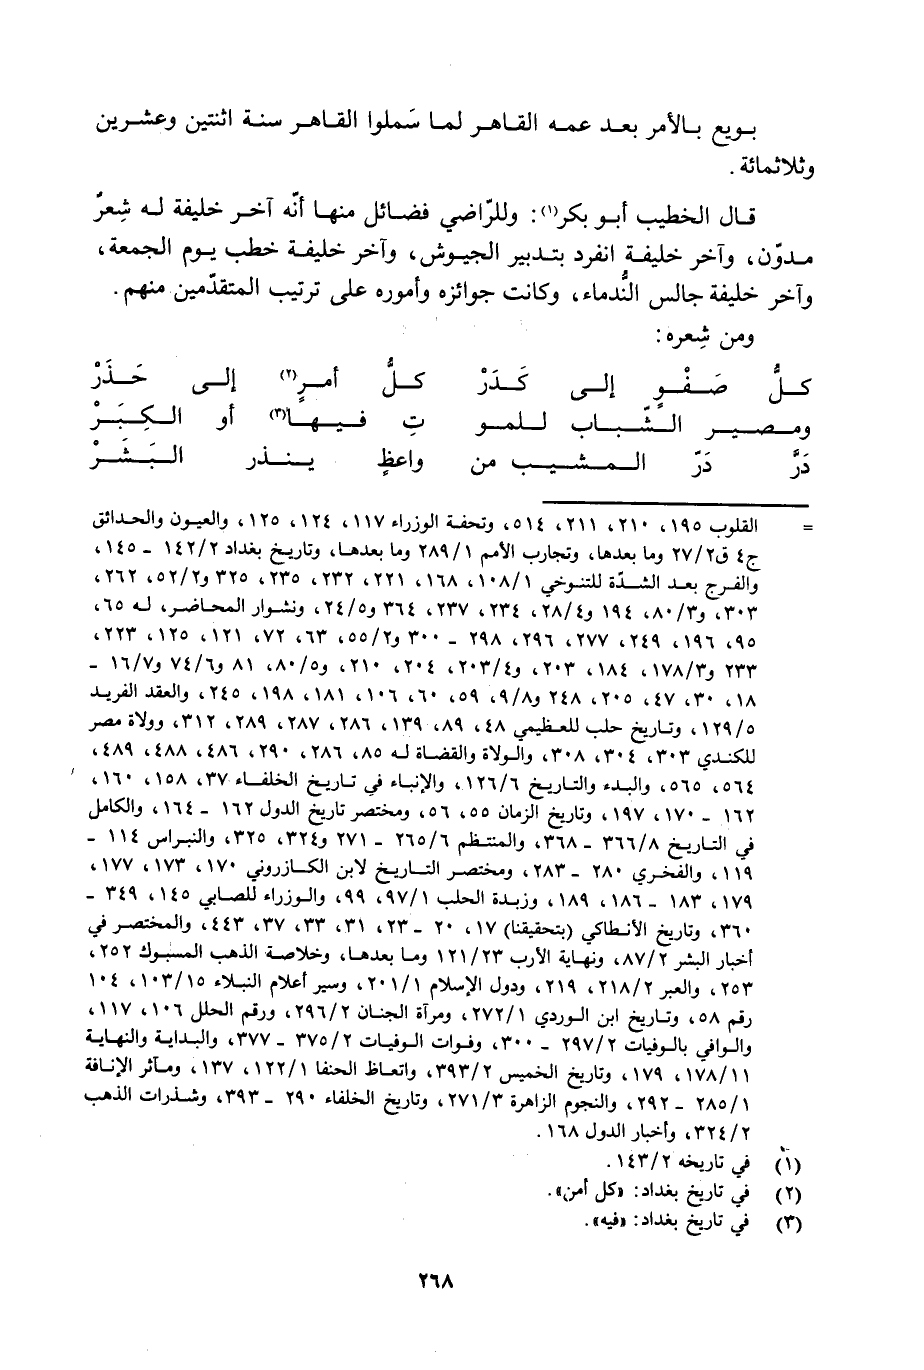 بويع بالأمر بعد عمه القاهر لما سَملوا القاهر سنة اثنتين وعشرين
وثلاثمائة .
قال الخطيب أبو بكر(١): وللرّاضي فضائل منها أنّه آخر خليفة له شِعرٌ
مدوّن، وآخر خليفة انفرد بتدبير الجيوش، وآخر خليفة خطب يوم الجمعة،
وآخر خليفة جالس النُّدماء، وكانت جوائزه وأموره على ترتيب المتقدّمين منهم.
ومن شِعره:
كلُّ صَفْوٍ إلى كَدَرْ كلُّ أمرٍ(٢) إلى حَذَرْ
ومصير الشّباب للمو تِ فيها(٣) أو الكِبَرْ
دَرَّ دَرّ المشيب من واعظٍ ينذر البَشَرْ
= القلوب ١٩٥، ٢١٠، ٢١١، ٥١٤، وتحفة الوزراء ١١٧، ١٢٤، ١٢٥، والعيون والحدائق
ج٤ ق٢٧/٢ وما بعدها، وتجارب الأمم ٢٨٩/١ وما بعدها، وتاريخ بغداد ١٤٢/٢ - ١٤٥،
والفرج بعد الشدّة للتنوخي ١٠٨/١، ١٦٨، ٢٢١، ٢٣٢، ٢٣٥، ٣٢٥ و٥٢/٢، ٢٦٢،
٣٠٣، و٨٠/٣، ١٩٤ و٢٨/٤، ٢٣٤، ٢٣٧، ٣٦٤ و٢٤/٥، ونشوار المحاضر، له ٦٥،
٩٥، ١٩٦، ٢٤٩، ٢٧٧، ٢٩٦، ٢٩٨ - ٣٠٠ و٥٥/٢، ٦٣، ٧٢، ١٢١، ١٢٥، ٢٢٣،
٢٣٣ و١٧٨/٣، ١٨٤، ٢٠٣، و٢٠٣/٤، ٢٠٤، ٢١٠، و٨٠/٥، ٨١ و٧٤/٦ و١٦/٧ -
١٨، ٣٠، ٤٧، ٢٠٥، ٢٤٨ و٩/٨، ٥٩، ٦٠، ١٠٦، ١٨١، ١٩٨، ٢٤٥، والعقد الفريد
١٢٩/٥، وتاريخ حلب للعظيمي ٤٨، ٨٩، ١٣٩، ٢٨٦، ٢٨٧، ٢٨٩، ٣١٢، وولاة مصر
للكندي ٣٠٣، ٣٠٤، ٣٠٨، والولاة والقضاة له ٨٥، ٢٨٦، ٢٩٠، ٤٨٦، ٤٨٨، ٤٨٩،
٥٦٤، ٥٦٥، والبدء والتاريخ ١٢٦/٦، والإنباء في تاريخ الخلفاء ٣٧، ١٥٨، ١٦٠،
١٦٢ - ١٧٠، ١٩٧، وتاريخ الزمان ٥٥، ٥٦، ومختصر تاريخ الدول ١٦٢ - ١٦٤، والكامل
في التاريخ ٣٦٦/٨ - ٣٦٨، والمنتظم ٢٦٥/٦ - ٢٧١ و٣٢٤، ٣٢٥، والنبراس ١١٤ -
١١٩، والفخري ٢٨٠ - ٢٨٣، ومختصر التاريخ لابن الكازروني ١٧٠، ١٧٣، ١٧٧،
١٧٩، ١٨٣ - ١٨٦، ١٨٩، وزبدة الحلب ٩٧/١، ٩٩، والوزراء للصابي ١٤٥، ٣٤٩ -
٣٦٠، وتاريخ الأنطاكي (بتحقيقنا) ١٧، ٢٠ - ٢٣، ٣١، ٣٣، ٣٧، ٤٤٣، والمختصر في
أخبار البشر ٨٧/٢، ونهاية الأرب ١٢١/٢٣ وما بعدها، وخلاصة الذهب المسبوك ٢٥٢،
٢٥٣، والعبر ٢١٨/٢، ٢١٩، ودول الإسلام ٢٠١/١، وسير أعلام النبلاء ١٠٣/١٥، ١٠٤
رقم ٥٨، وتاريخ ابن الوردي ٢٧٢/١، ومرآة الجنان ٢٩٦/٢، ورقم الحلل ١٠٦، ١١٧،
والوافي بالوفيات ٢٩٧/٢ - ٣٠٠، وفوات الوفيات ٣٧٥/٢ - ٣٧٧، والبداية والنهاية
١٧٨/١١، ١٧٩، وتاريخ الخميس ٣٩٣/٢، واتعاظ الحنفا ١٢٢/١، ١٣٧، ومآثر الإنافة
٢٨٥/١ - ٢٩٢، والنجوم الزاهرة ٢٧١/٣، وتاريخ الخلفاء ٢٩٠ - ٣٩٣، وشذرات الذهب
٣٢٤/٢، وأخبار الدول ١٦٨ .
(١) في تاريخه ١٤٣/٢ .
(٢) في تاريخ بغداد: «كل أمن».
(٣) في تاريخ بغداد: «فيه».
٢٦٨